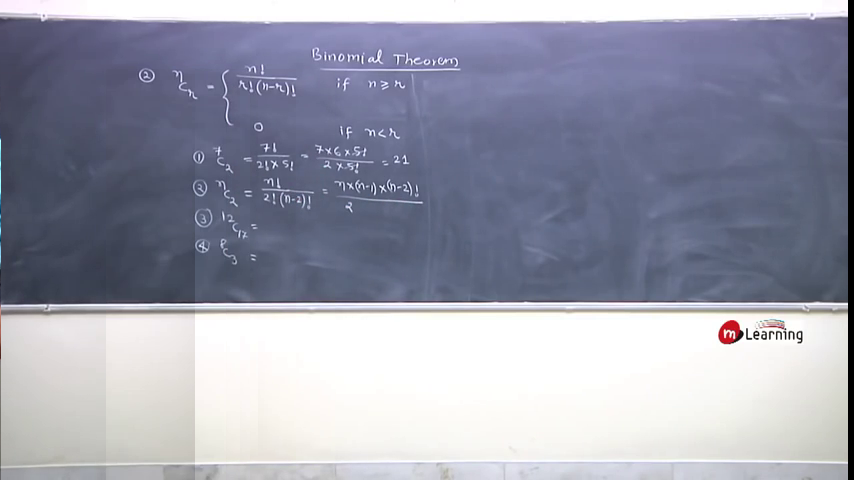 Binomial Theorem
② ⁿCᵣ = { n! / r!(n-r)! if n ≥ r
0 if n < r
① ⁷C₂ = 7! / 2! × 5! = 7 × 6 × 5! / 2 × 5! = 21
② ⁿC₂ = n! / 2!(n-2)! = n × (n-1) × (n-2)! / 2
③ ¹²C₁₇ =
④ ⁸C₃ =
m Learning